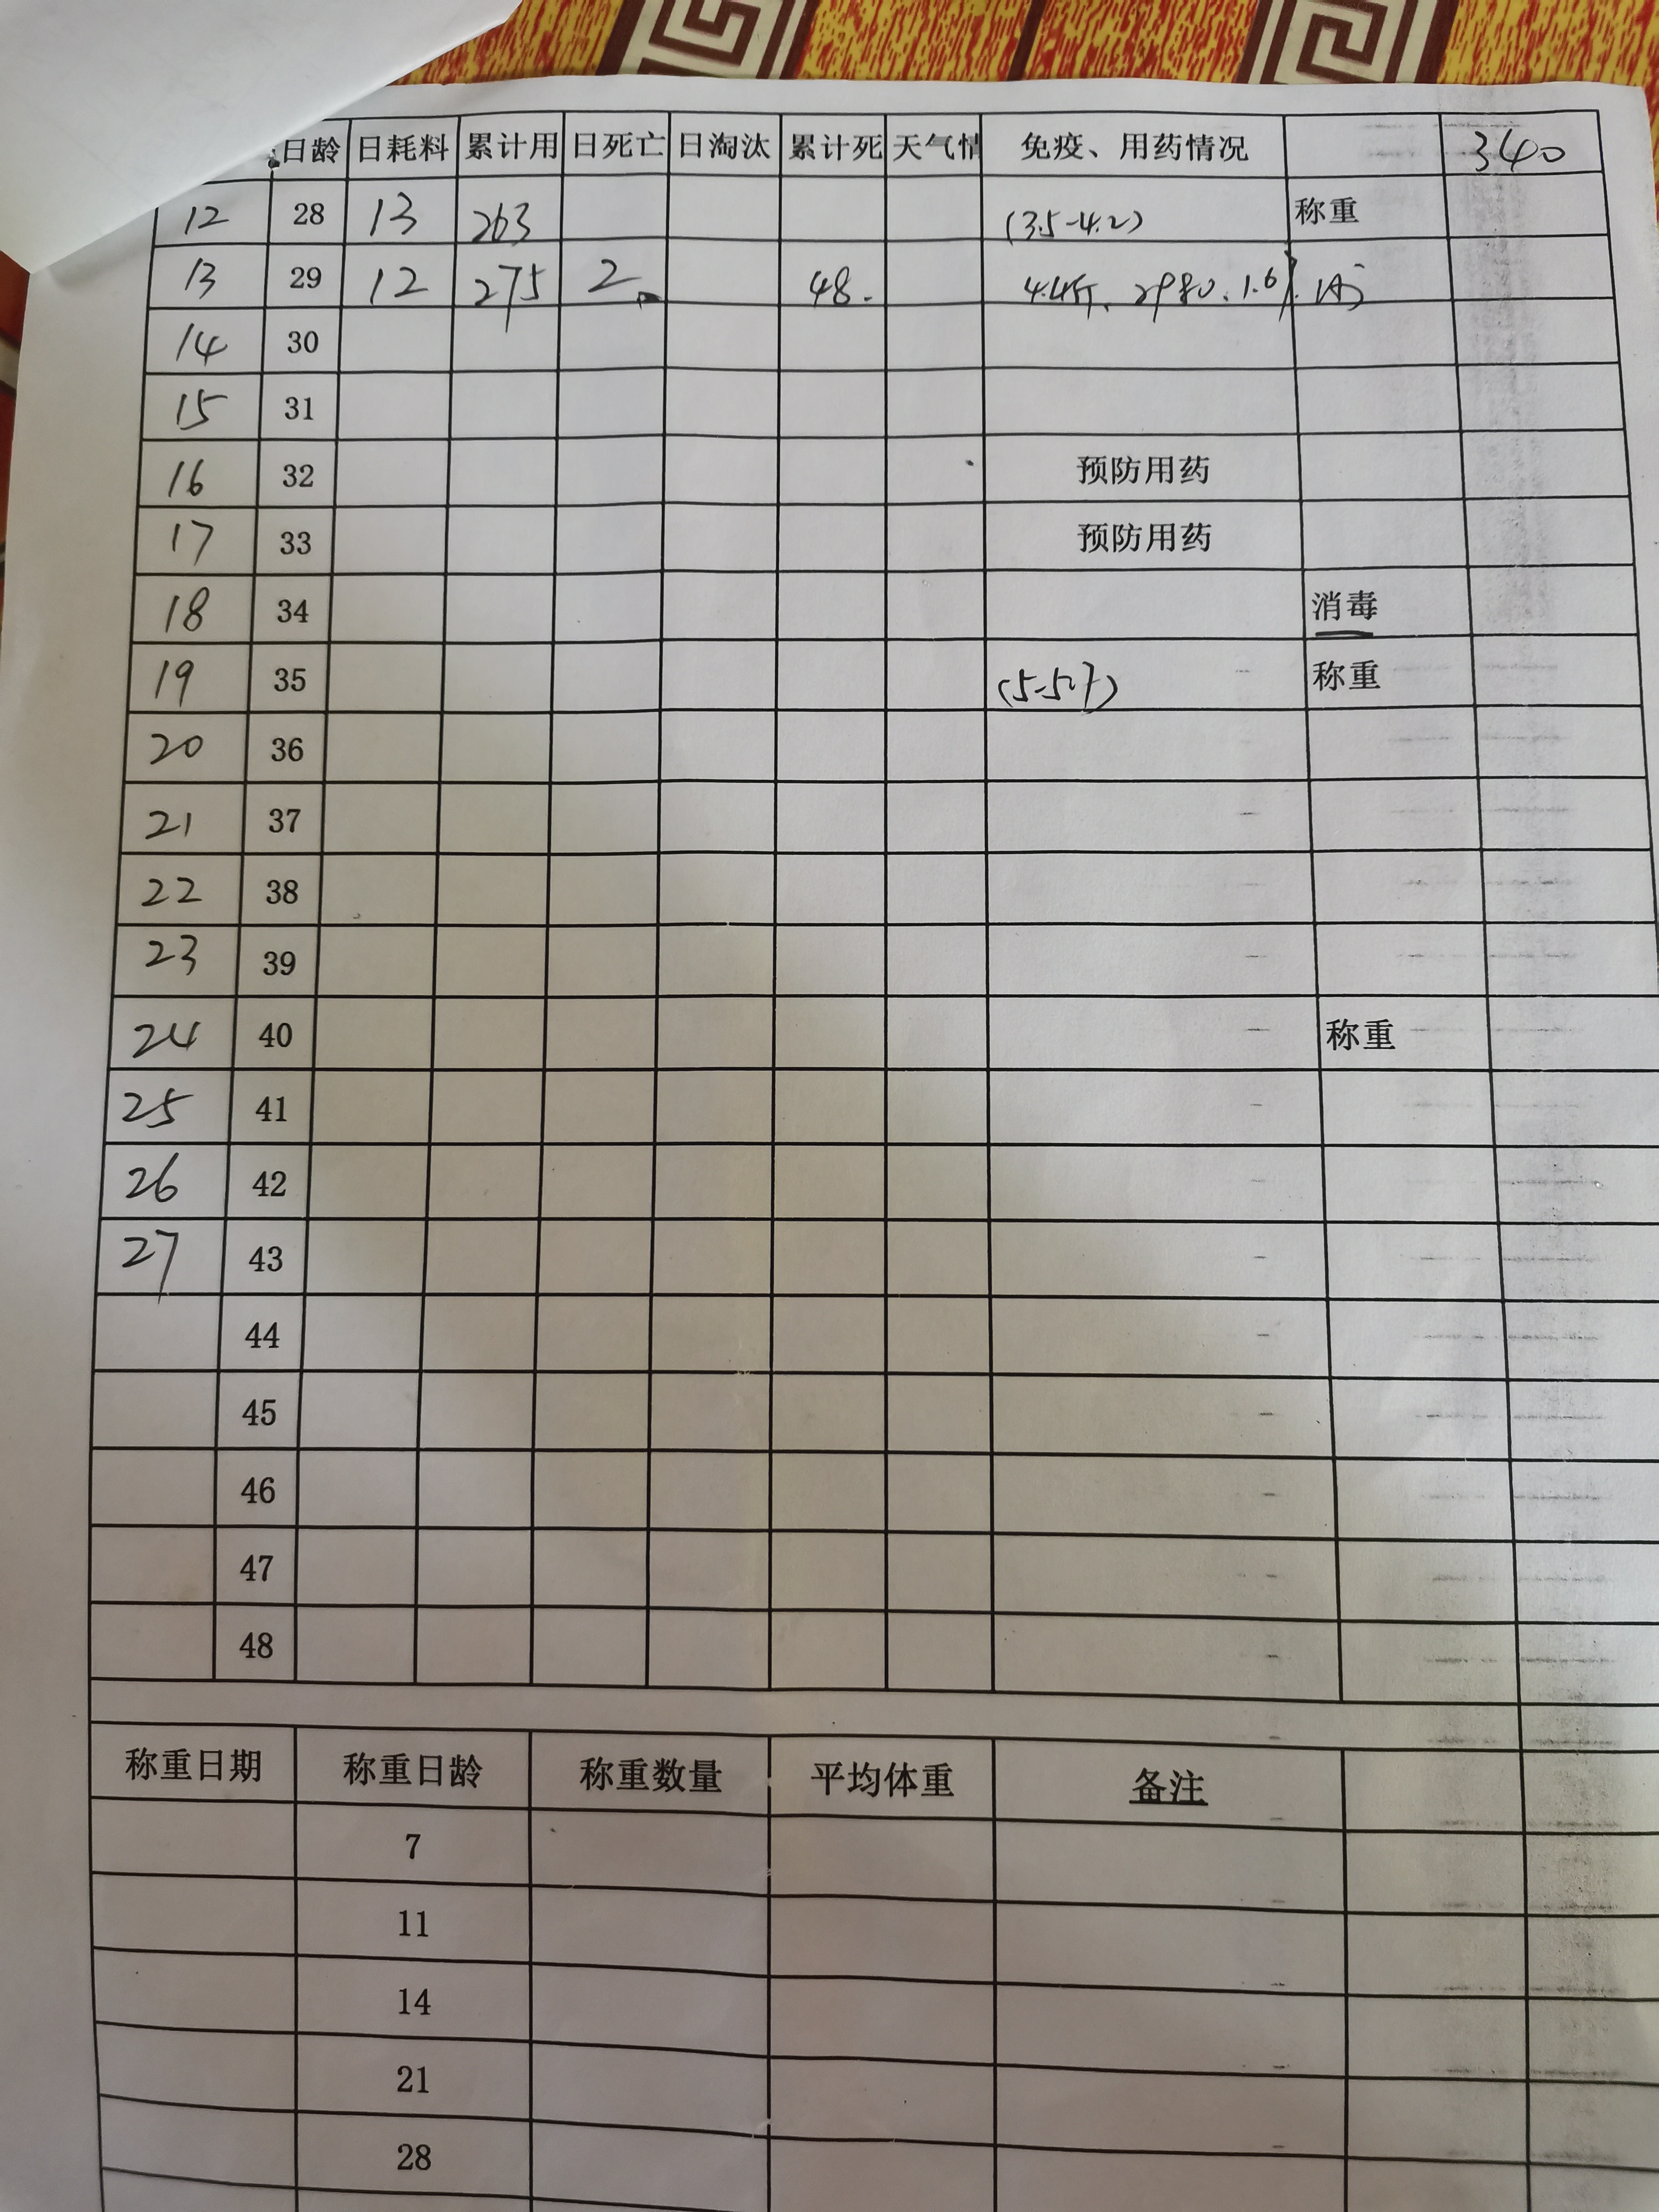 日龄 日耗料 累计用 日死亡 日淘汰 累计死 天气情 免疫、用药情况 340
12 28 13 263 (3.5-4.2) 称重
13 29 12 275 2 48. 4.4斤、2980、1.6
14 30
15 31
16 32 预防用药
17 33 预防用药
18 34 消毒
19 35 称重
20 36
21 37
22 38
23 39
24 40 称重
25 41
26 42
27 43
44
45
46
47
48
称重日期 称重日龄 称重数量 平均体重 备注
7
11
14
21
28